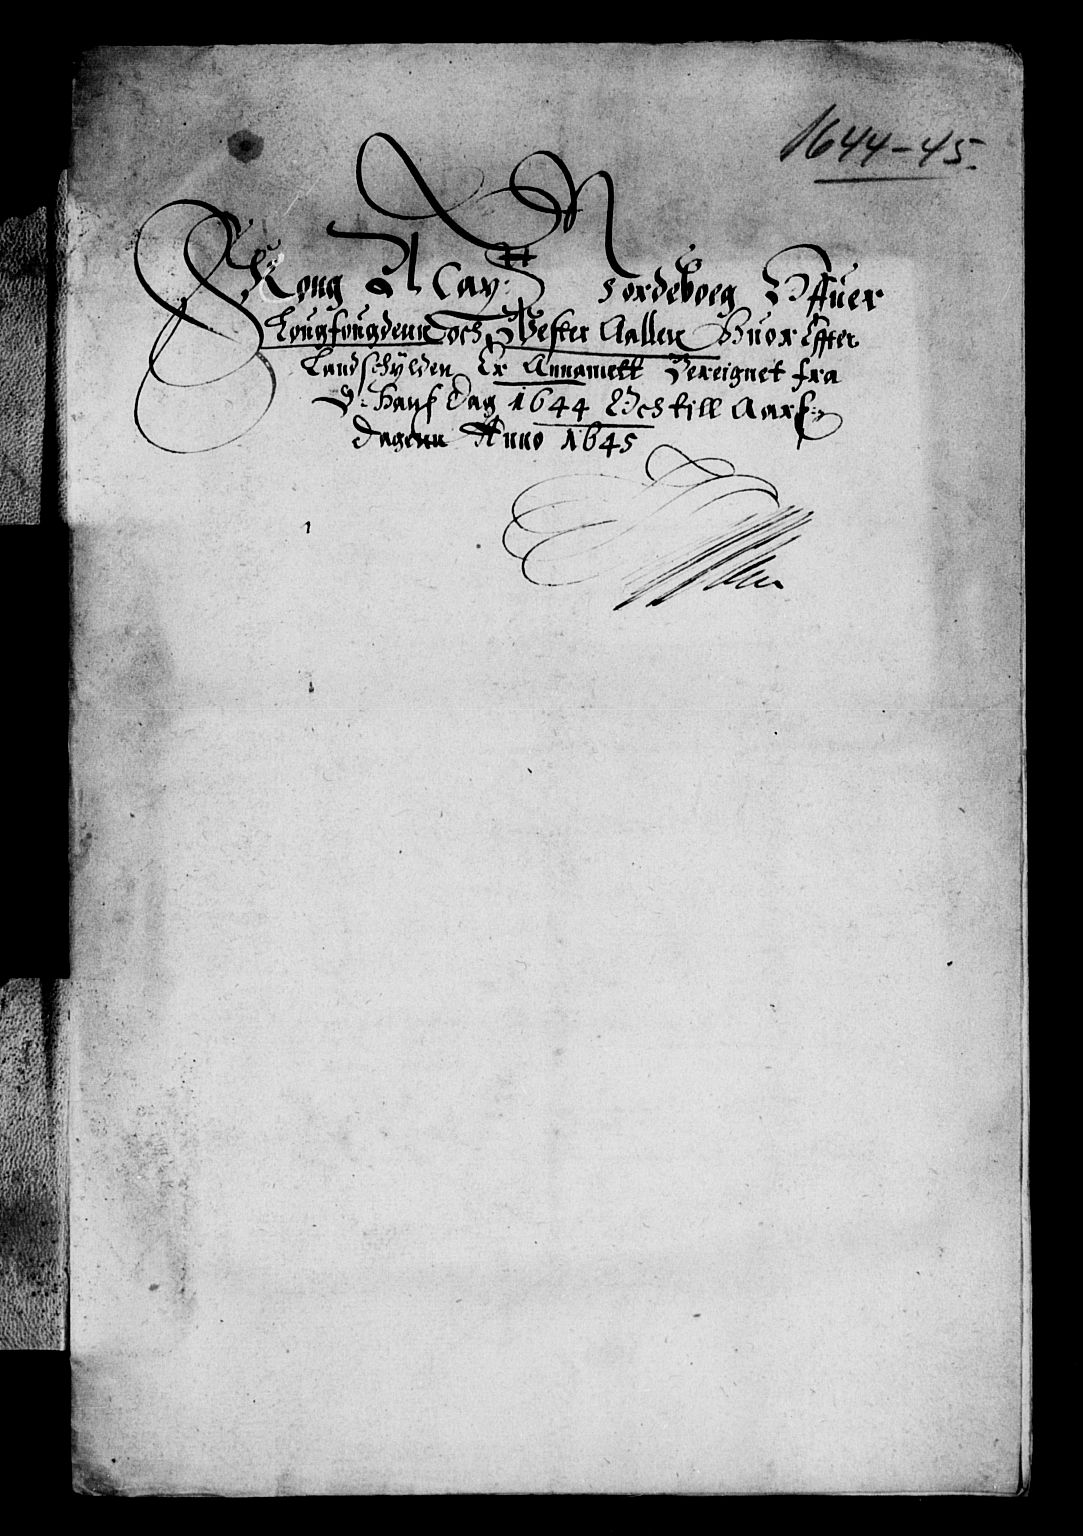 1644-45.
Kong May:tt Jordeboeg Offuer
Lougfougdenn och Vester Aallen Huor Effter
Landschÿlden Er Annamett Bereignet fra
S: Hanss Dag 1644 Och till Aarss
dagenn Anno 1645